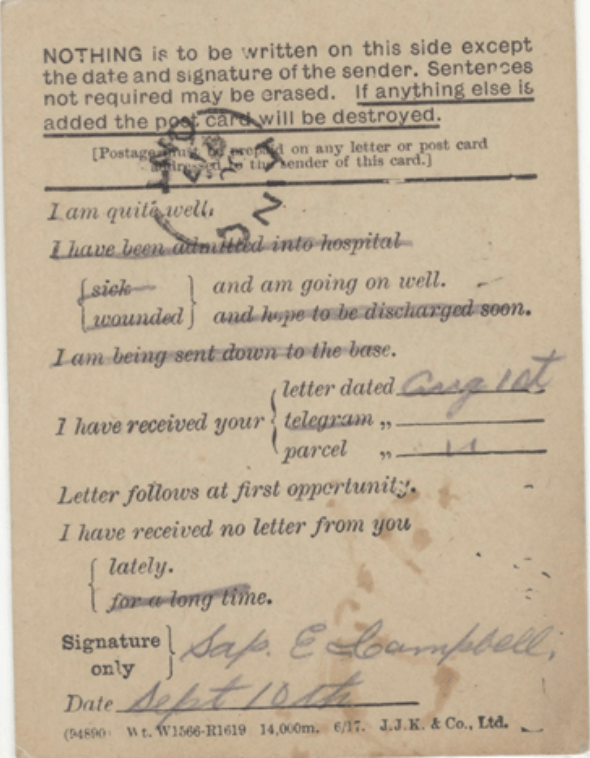 NOTHING is to be written on this side except
the date and signature of the sender. Sentences
not required may be erased. If anything else is
added the post card will be destroyed.
[Postage must be prepaid on any letter or post card
addressed to the sender of this card.]
I am quite well.
I have been admitted into hospital
sick and am going on well.
wounded and hope to be discharged soon.
I am being sent down to the base.
letter dated Aug 1st
I have received your telegram „
parcel „ "
Letter follows at first opportunity.
I have received no letter from you
lately.
for a long time.
Signature only Sap. E Campbell.
Date Sept 10th
(94890) Wt. W1566-R1619 14,000m. 6/17. J.J.K. & Co., Ltd.